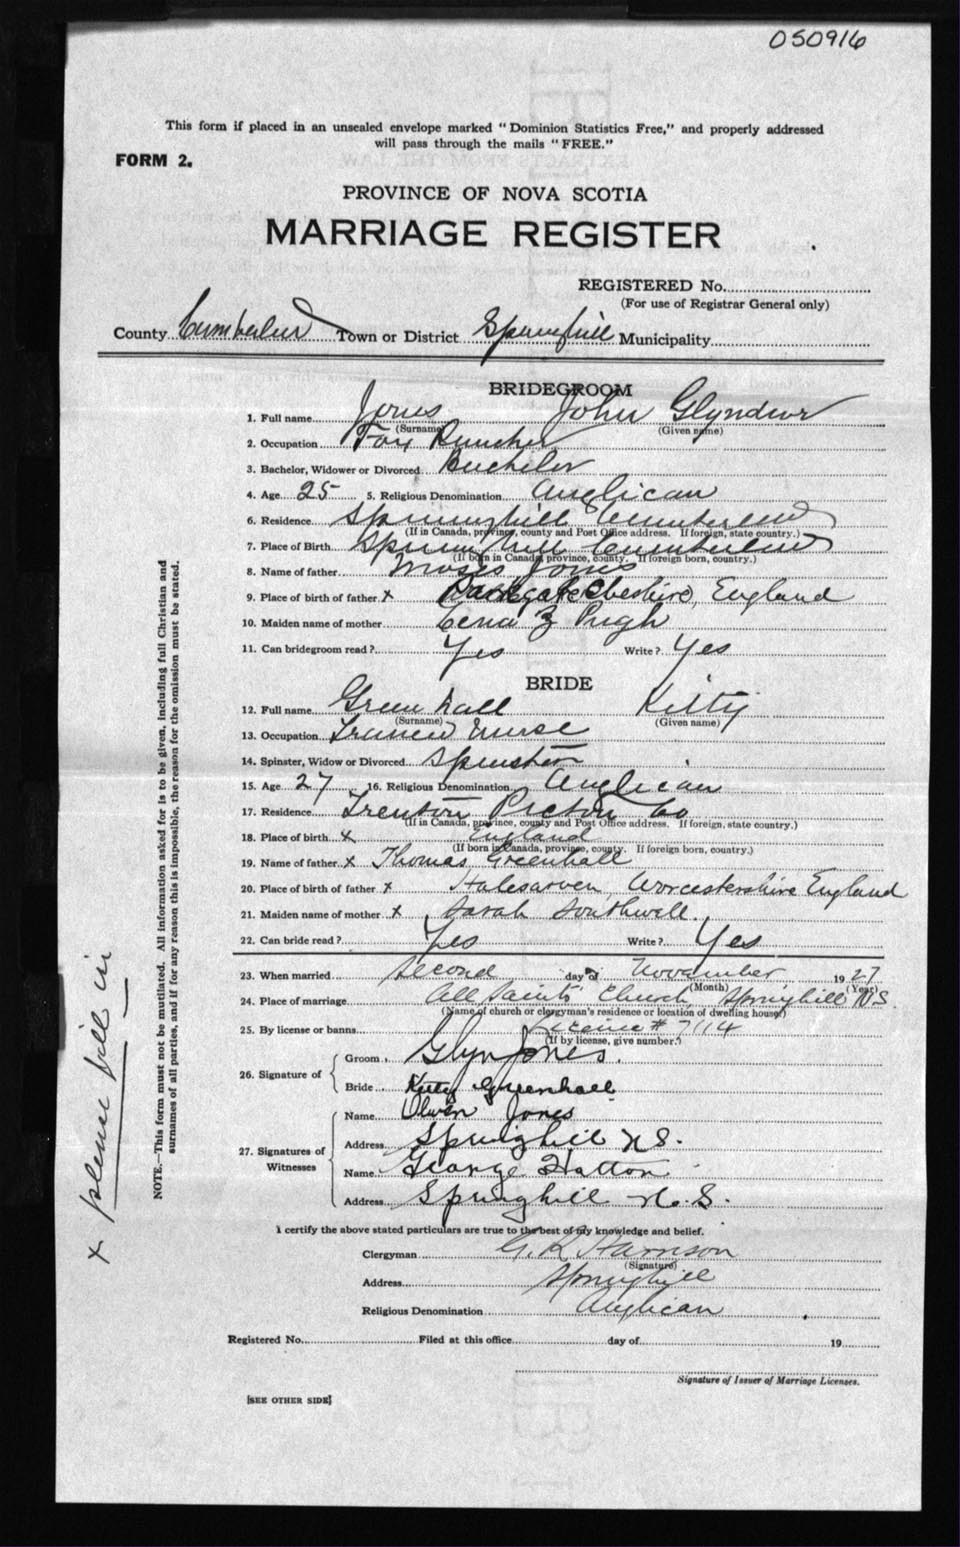 050916
This form if placed in an unsealed envelope marked "Dominion Statistics Free," and properly addressed
will pass through the mails "FREE."
FORM 2.
PROVINCE OF NOVA SCOTIA
MARRIAGE REGISTER
REGISTERED No.
(For use of Registrar General only)
County Cumberland Town or District Springhill Municipality
BRIDEGROOM
1. Full name Jones John Glyndwr
(Surname) (Given name)
2. Occupation Fox Rancher
3. Bachelor, Widower or Divorced Bachelor
4. Age 25 5. Religious Denomination Anglican
6. Residence Springhill Cumberland
(If in Canada, province, county and Post Office address. If foreign, state country.)
7. Place of Birth Springhill Cumberland
(If born in Canada, province, county. If foreign born, country.)
8. Name of father Moses Jones
9. Place of birth of father x Cheshire, England
10. Maiden name of mother Pugh
11. Can bridegroom read? Yes Write? Yes
BRIDE
12. Full name Greenhall Kitty
(Surname) (Given name)
13. Occupation Trained Nurse
14. Spinster, Widow or Divorced Spinster
15. Age 27 16. Religious Denomination Anglican
17. Residence Trenton Pictou Co
(If in Canada, province, county and Post Office address. If foreign, state country.)
18. Place of birth x England
(If born in Canada, province, county. If foreign born, country.)
19. Name of father x Thomas Greenhall
20. Place of birth of father x Halesarven, Worcestershire England
21. Maiden name of mother x Sarah Southwell.
22. Can bride read? Yes Write? Yes
23. When married Second day of November 1927
(Month) (Year)
24. Place of marriage All Saints Church, Springhill N.S.
(Name of church or clergyman's residence or location of dwelling house)
25. By license or banns License # 7114
(If by license, give number.)
26. Signature of
Groom Glyn Jones.
Bride Kitty Greenhall
27. Signatures of Witnesses
Name Olwen Jones
Address Springhill N.S.
Name George Hatton
Address Springhill N.S.
I certify the above stated particulars are true to the best of my knowledge and belief.
Clergyman Harrison
(Signature)
Address Springhill
Religious Denomination Anglican
Registered No. Filed at this office day of 19
Signature of Issuer of Marriage Licenses.
[SEE OTHER SIDE]
NOTE.—This form must not be mutilated. All information asked for is to be given, including full Christian and
surnames of all parties, and if for any reason this is impossible, the reason for the omission must be stated.
x please fill in